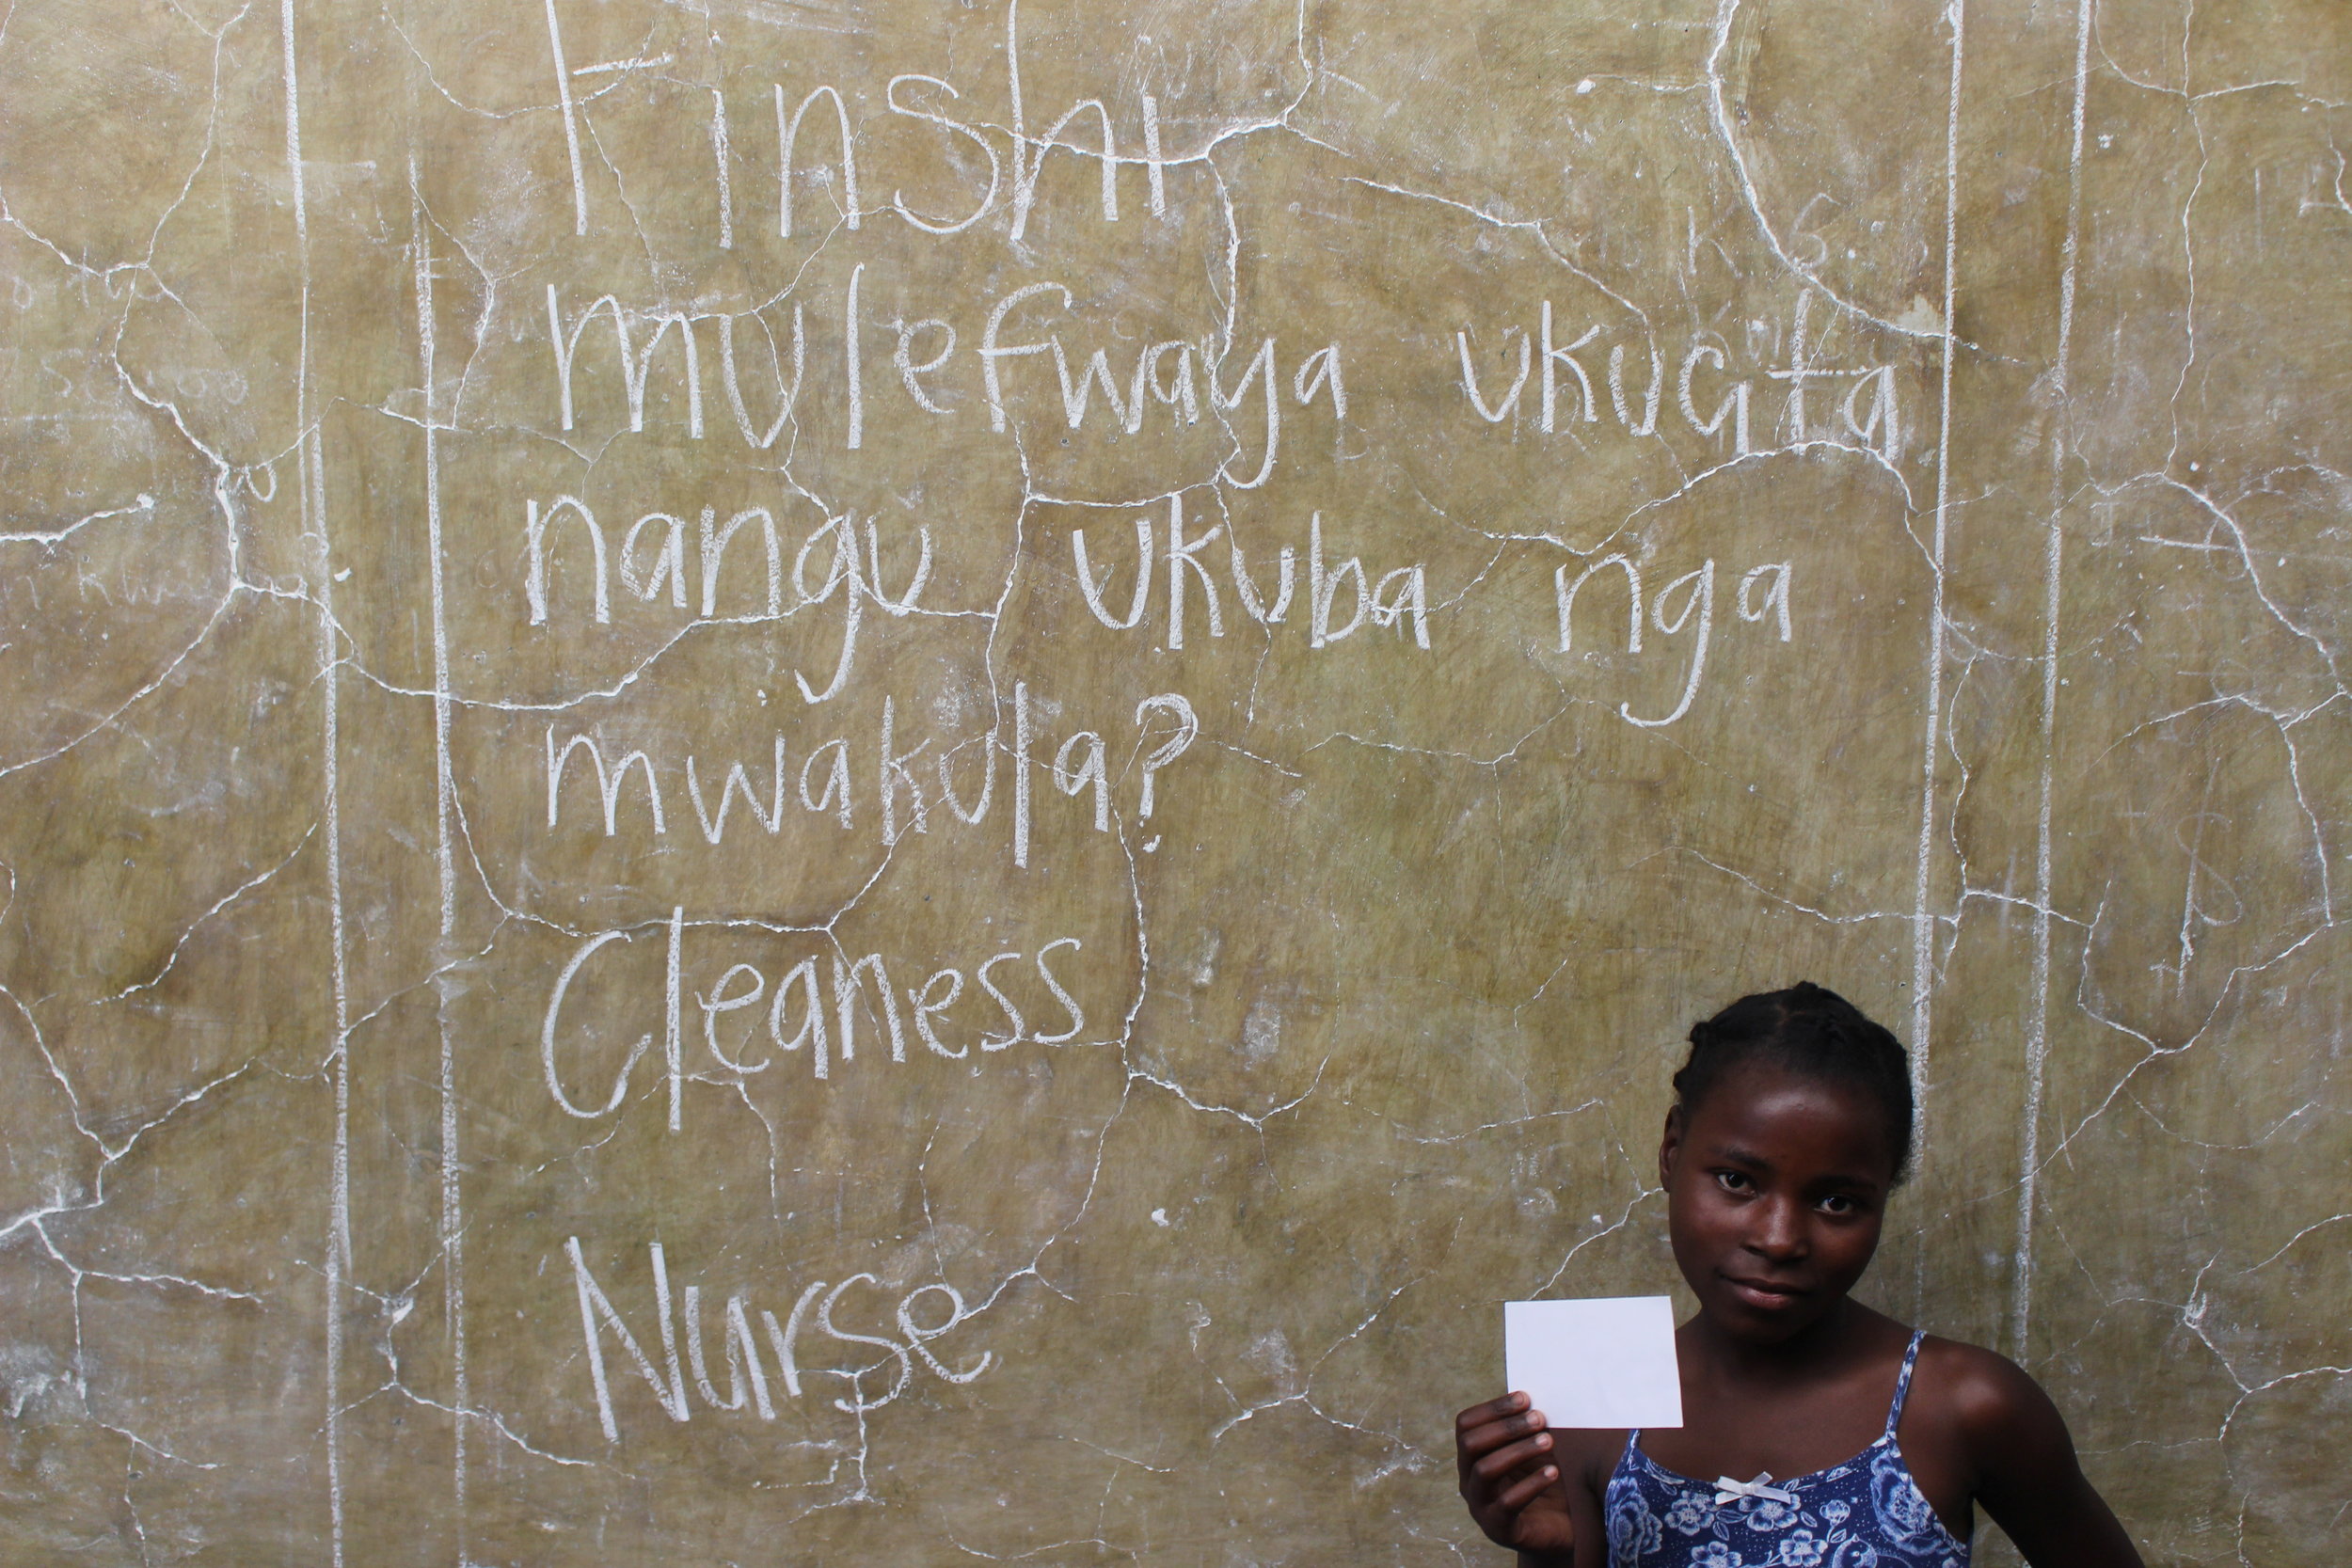 Finshi
mulefwaya ukucita
nangu ukuba nga
mwakula?
Cleaness
Nurse